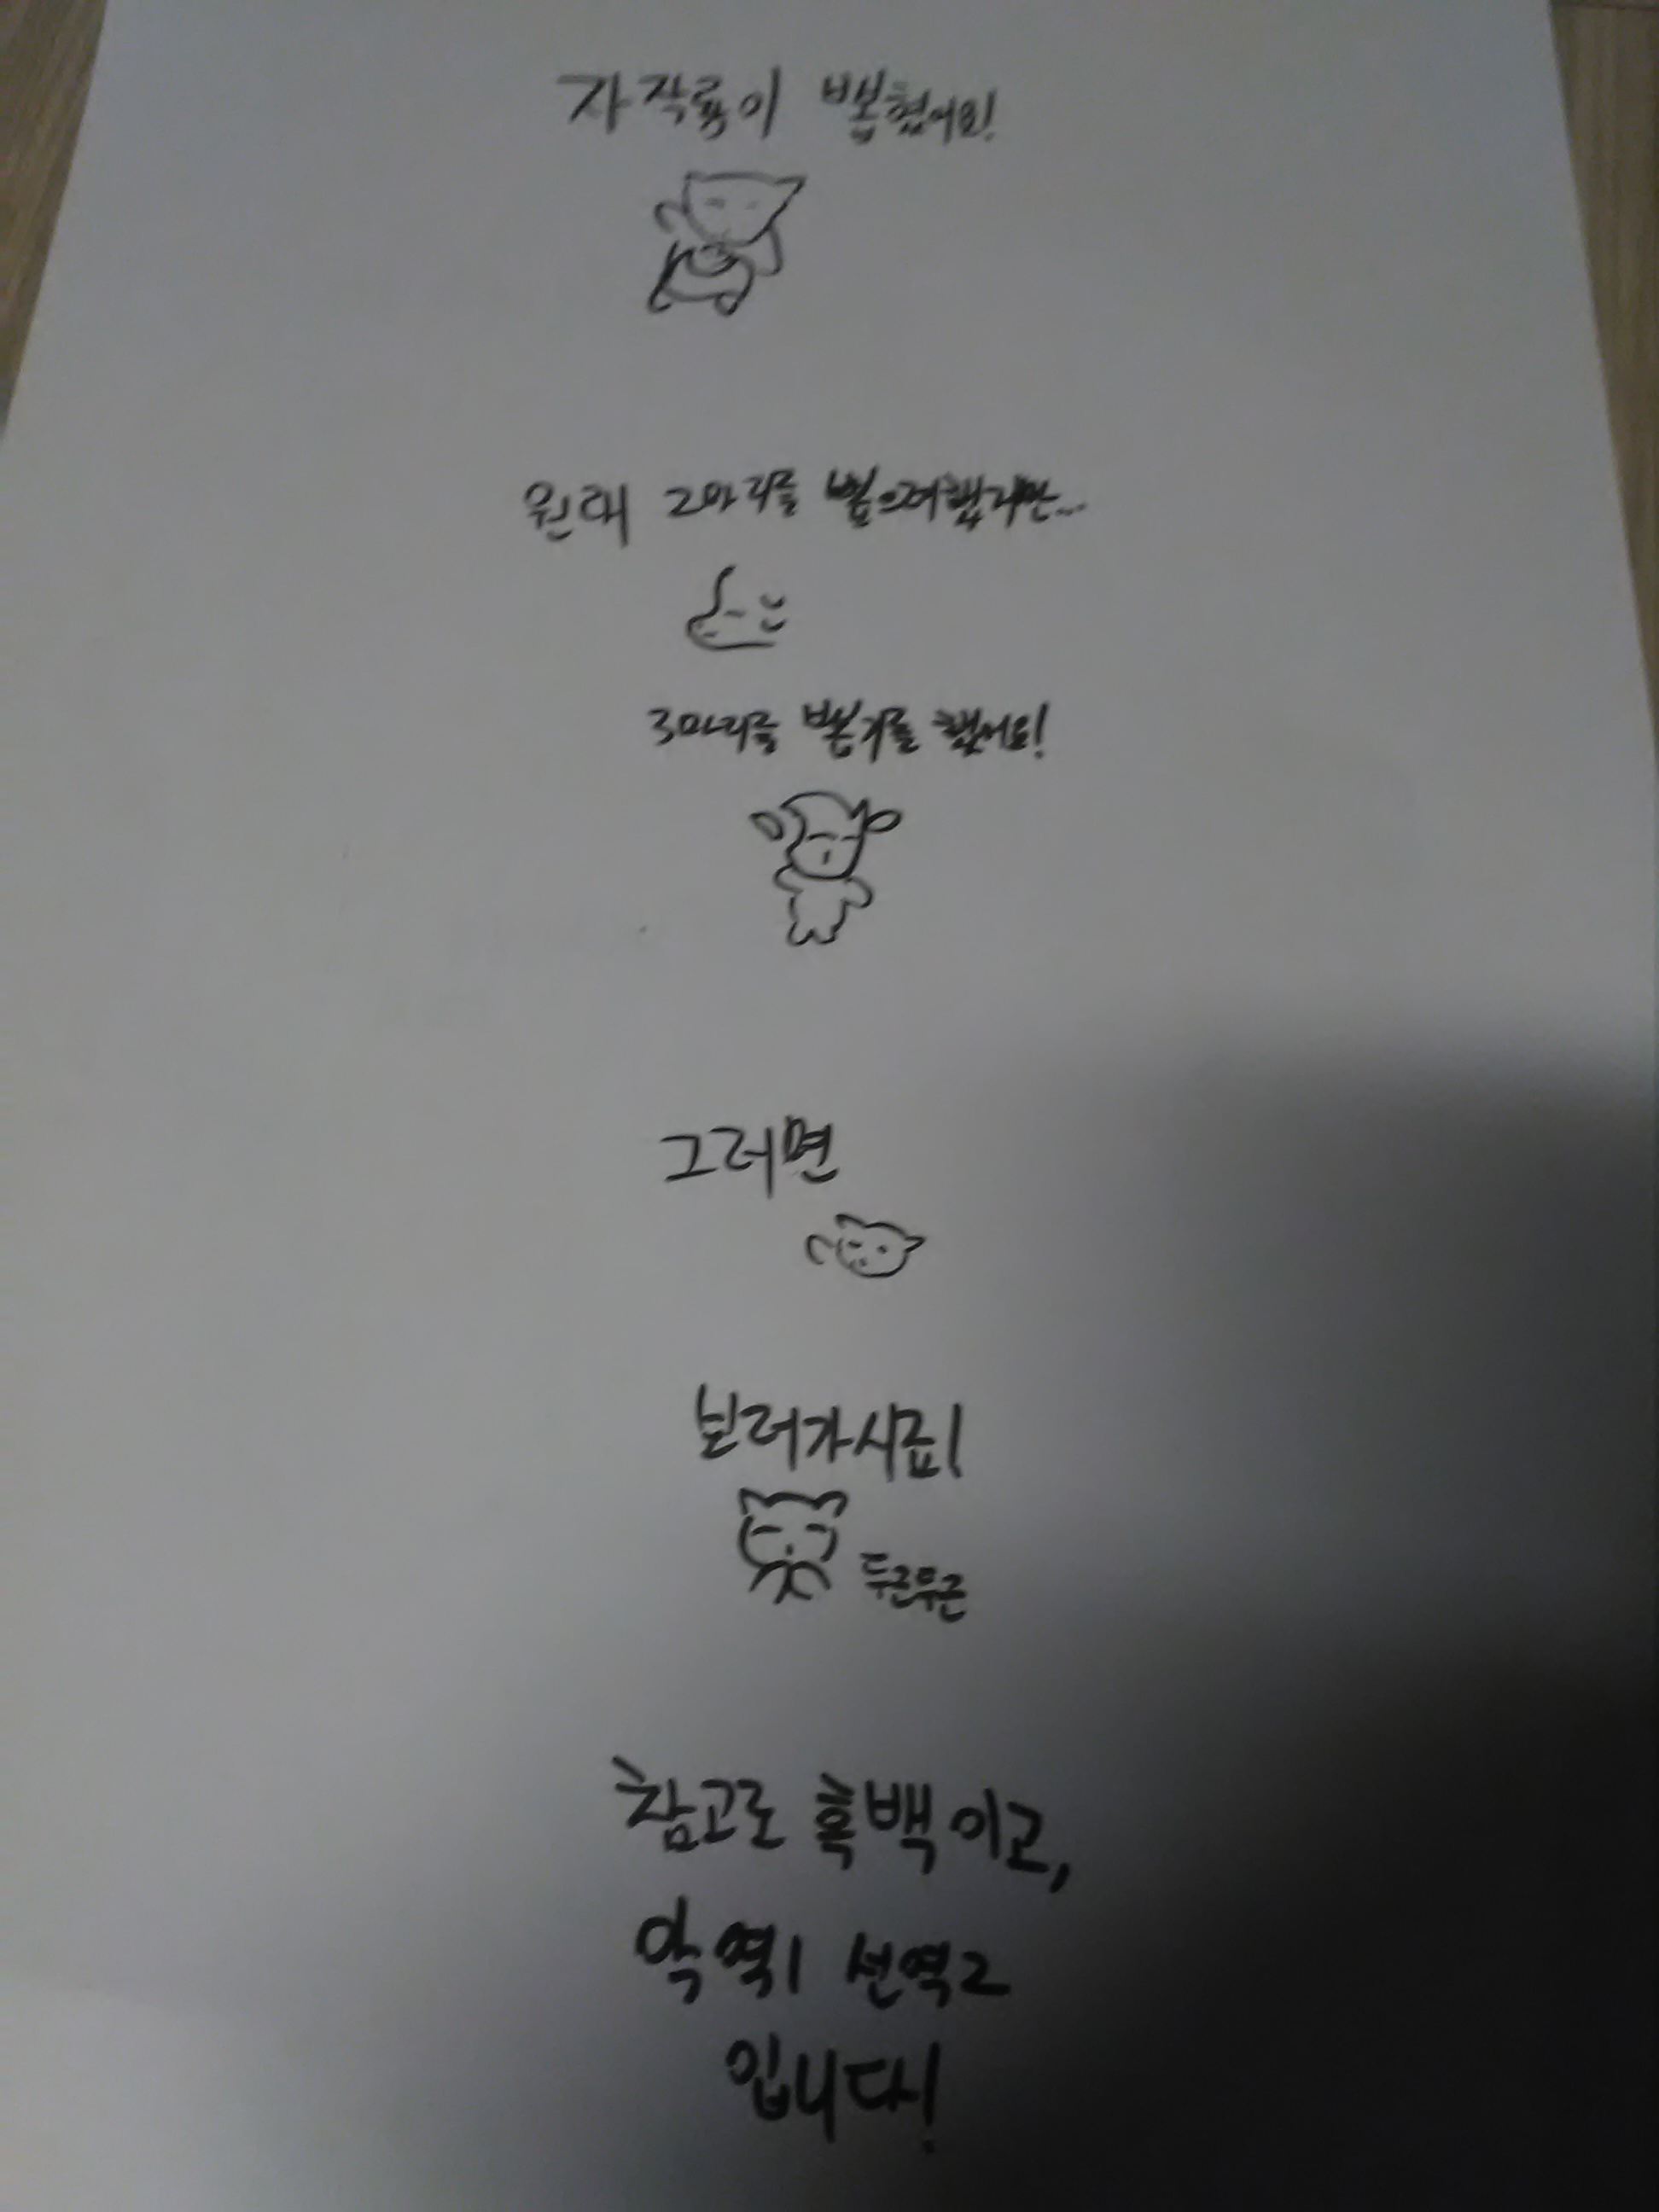 자작룡이 뽑혔어요!
원래 2마리를 뽑으려했지만...
3마리를 뽑기를 했어요!
그러면
보러가시죠!
두근두근
참고로 흑백이고,
악역1 선역2
입니다!